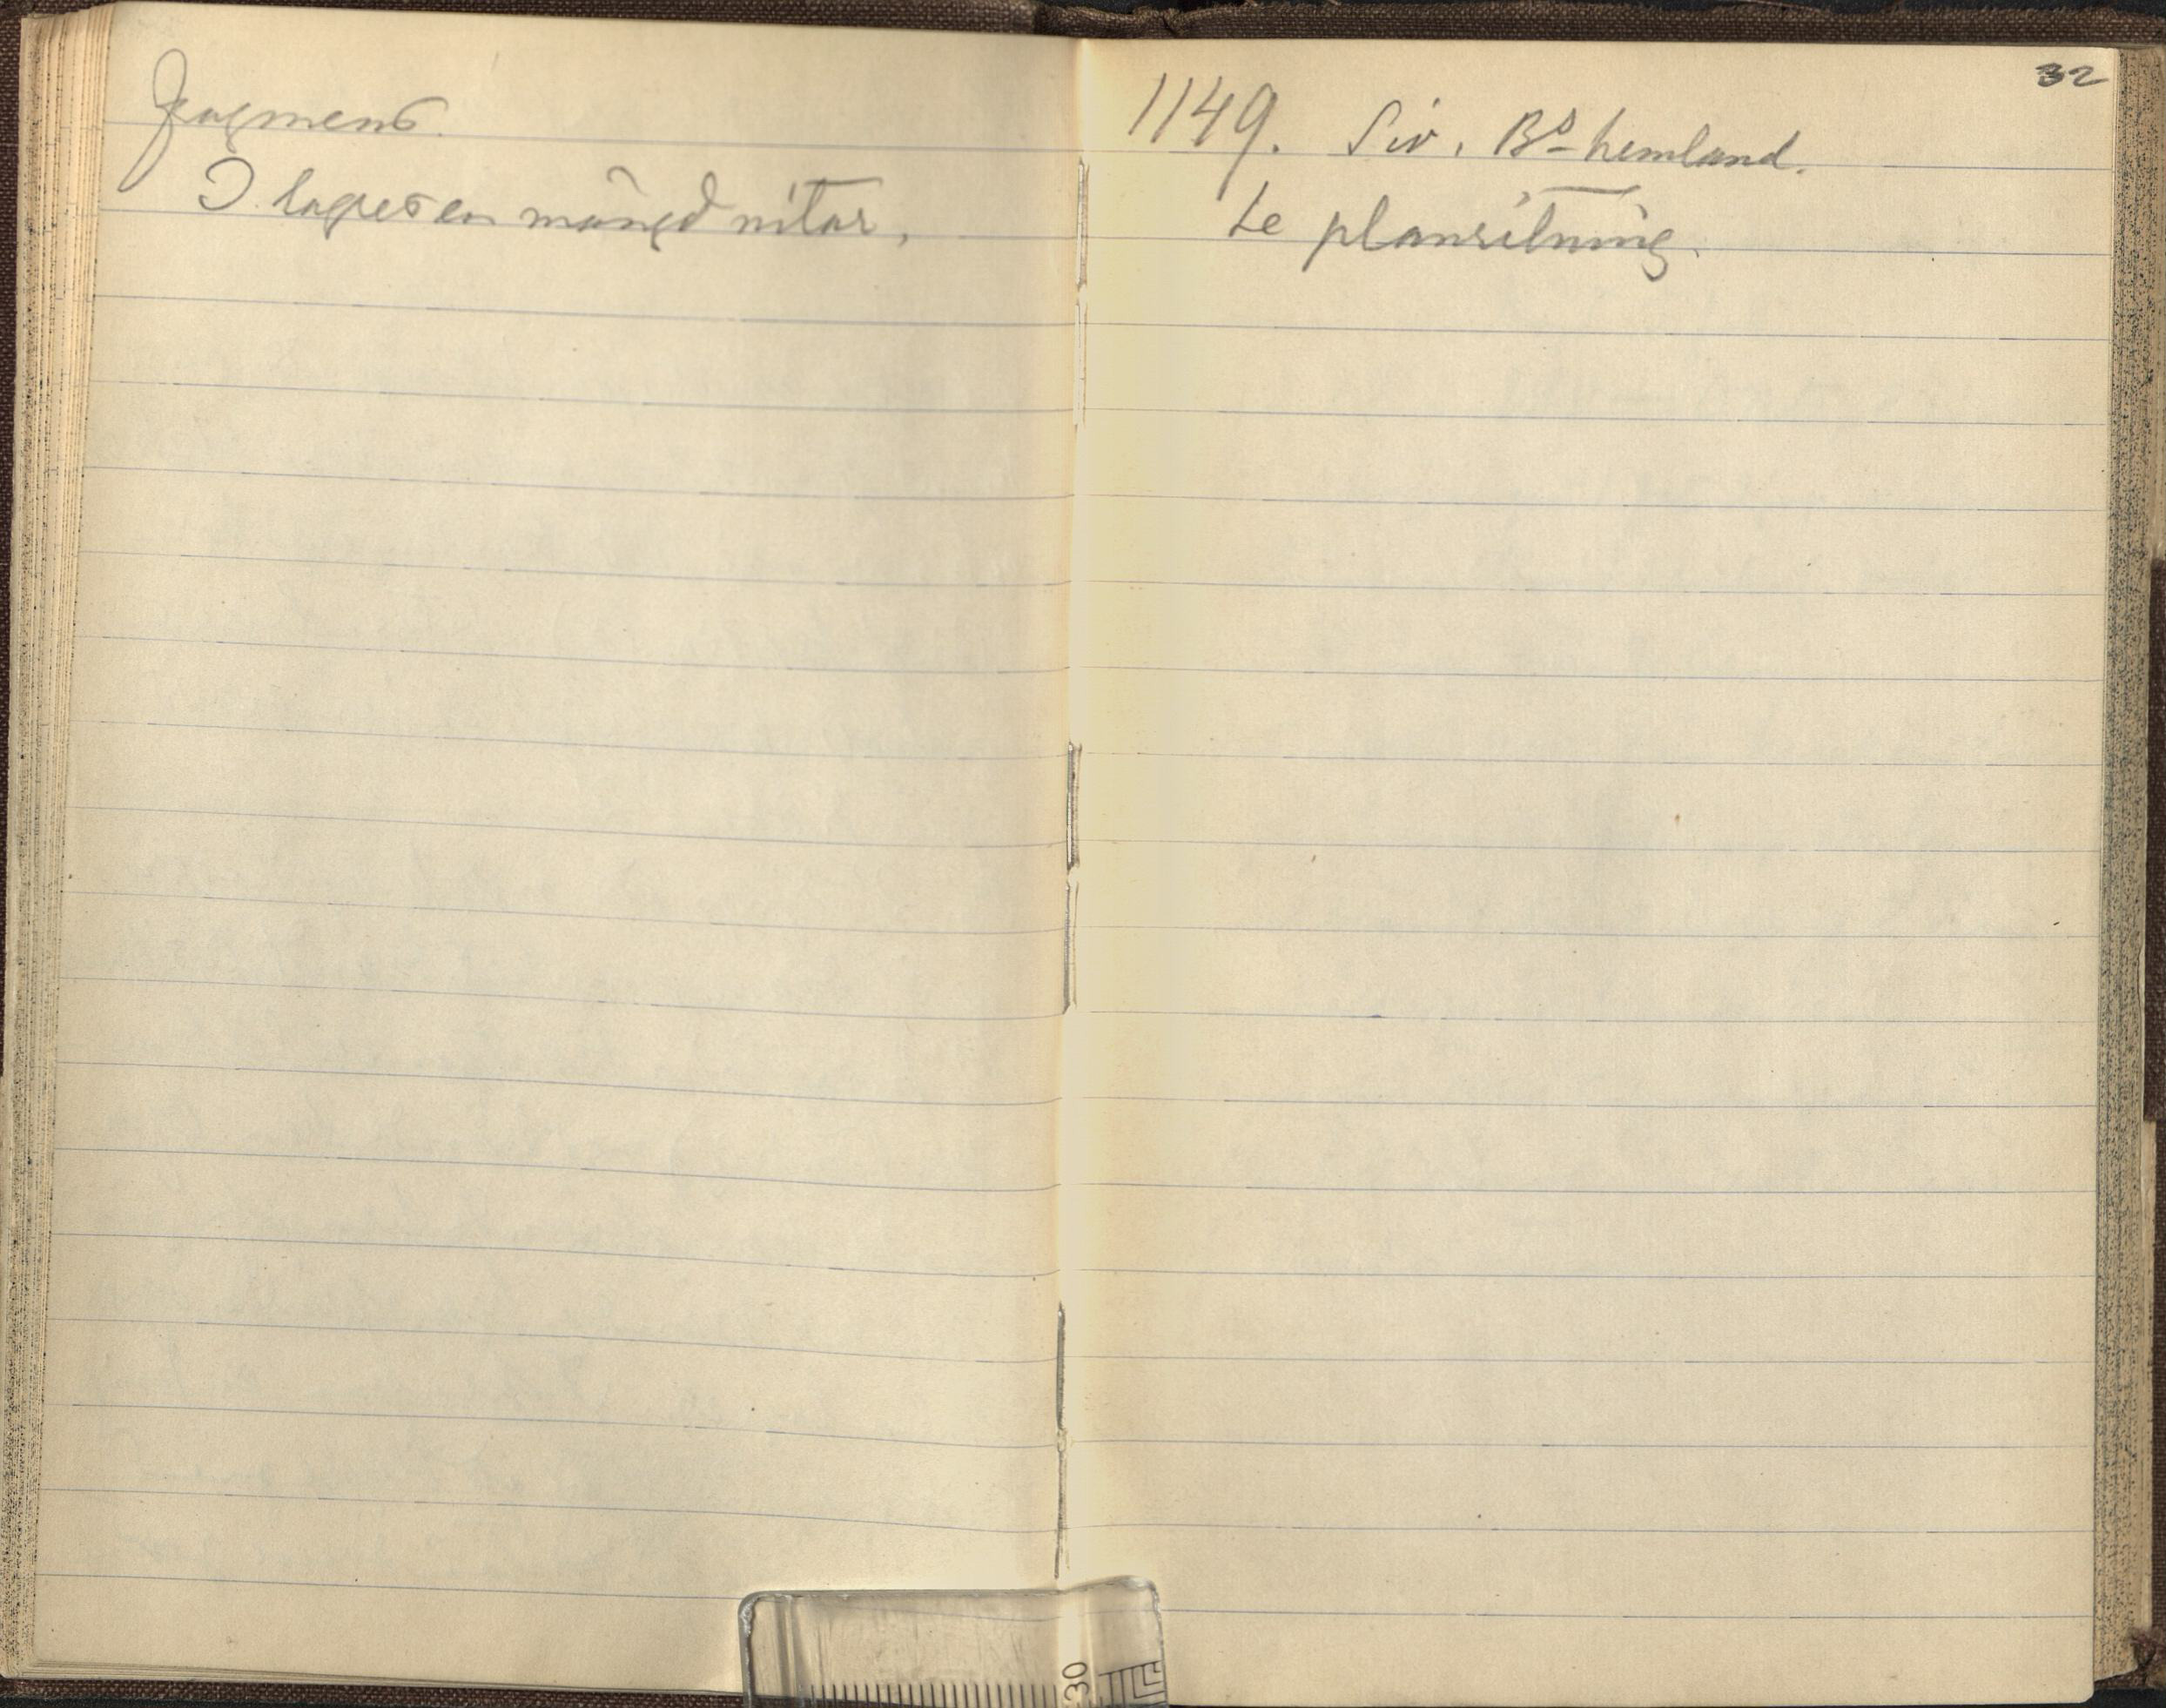 fragment.
I lagret en mängd nitar.
32
1149. Siv. Bs hemland.
Se planritning.
30